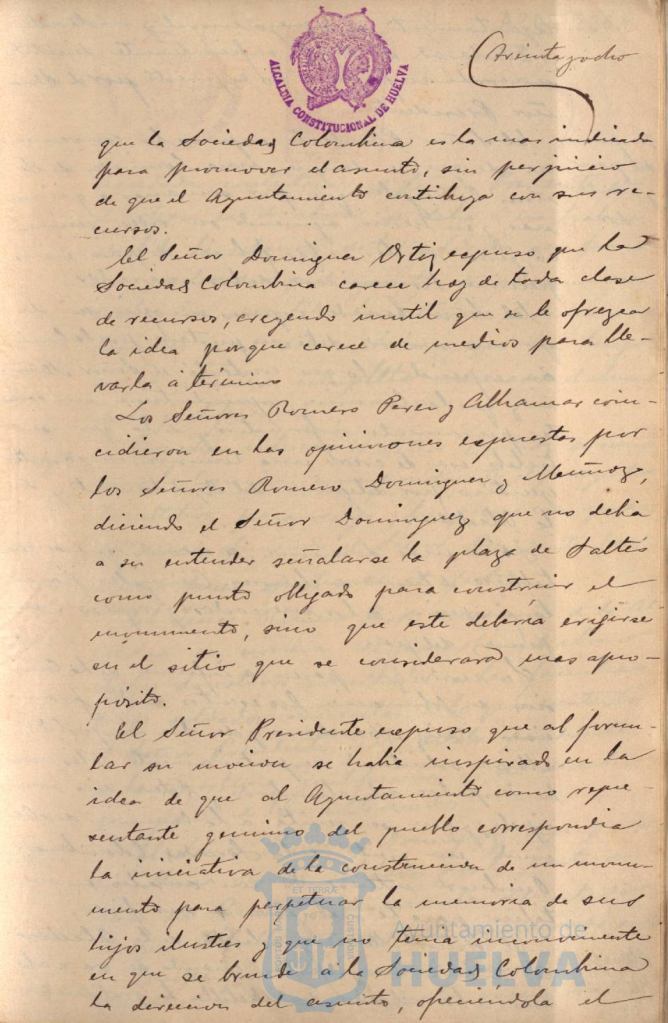 Treinta y ocho
ALCALDIA CONSTITUCIONAL DE HUELVA
que la Sociedad Colombina es la mas indicada
para promover el asunto, sin perjuicio
de que el Ayuntamiento contribuya con sus re-
cursos.
El Señor Dominguez Ortiz expuso que la
Sociedad Colombina carece hoy de toda clase
de recursos, creyendo inutil que se le ofrezca
la idea porque carece de medios para lle-
varla á término
Los Señores Romero Perez y Alhamar coin-
cidieron en las opiniones expuestas por
los Señores Romero Dominguez y Muñoz,
diciendo el Señor Dominguez que no debia
á su entender señalarse la plaza de Saltés
como punto obligado para construir el
monumento, sino que este debería erigirse
en el sitio que se considerara mas apro-
pósito.
El Señor Presidente expuso que al formu-
lar su mocion se habia inspirado en la
idea de que al Ayuntamiento como repre-
sentante genuino del pueblo correspondia
la iniciativa de la construccion de un monu-
mento para perpetuar la memoria de sus
hijos ilustres y que no tenia inconveniente
en que se brinde á la Sociedad Colombina
la direccion del asunto, ofreciéndola el
Ayuntamiento de
HUELVA